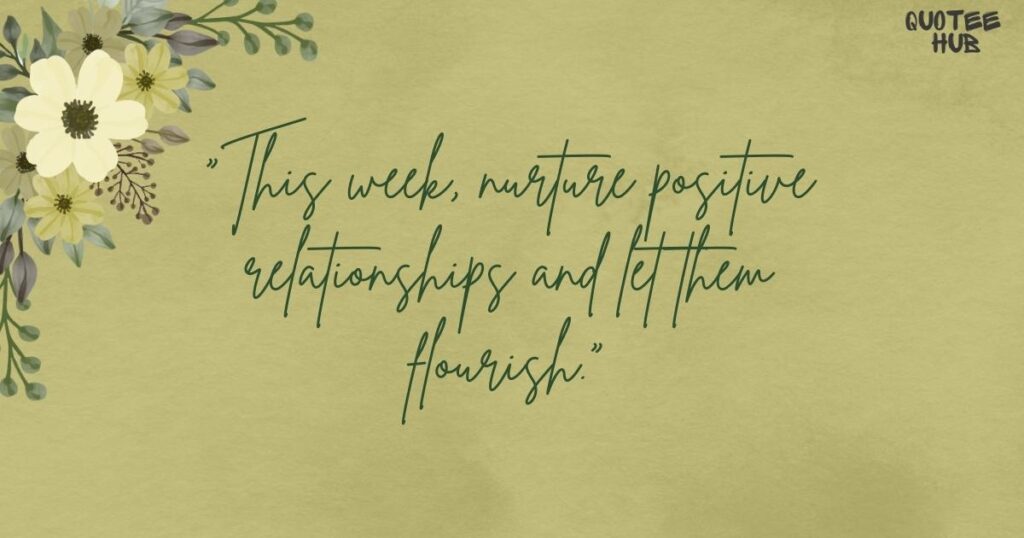 QUOTEE
HUB
"This week, nurture positive
relationships and let them
flourish."